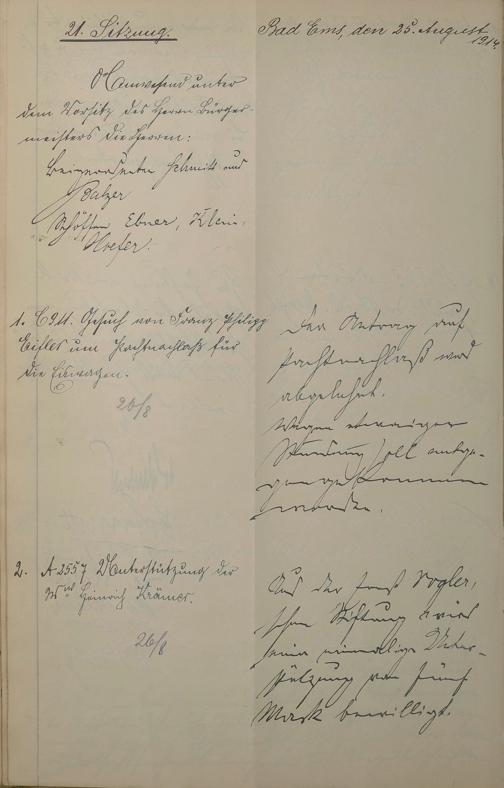 21. Sitzung.
Bad Ems, den 25. August
1914.
Anwesend unter
dem Vorsitz des Herrn Bürger-
meisters die Herren:
Beigeordneten Schmitt und
Balzer
Schöffen Ebner, Klein,
Hoefer.
1. C 911. Gesuch von Franz Philipp
Eifler um Pachtnachlaß für
die Eiswagen.
26/8
Der Antrag auf
Pachtnachlaß wird
abgelehnt.
Wegen etwaiger
Stundung soll entge-
gengekommen
werden.
2. A 2557 Unterstützung der
Wwe Heinrich Krämer.
26/8
Aus der Ernst Vogler'
schen Stiftung wird
eine einmalige Unter-
stützung von fünf
Mark bewilligt.